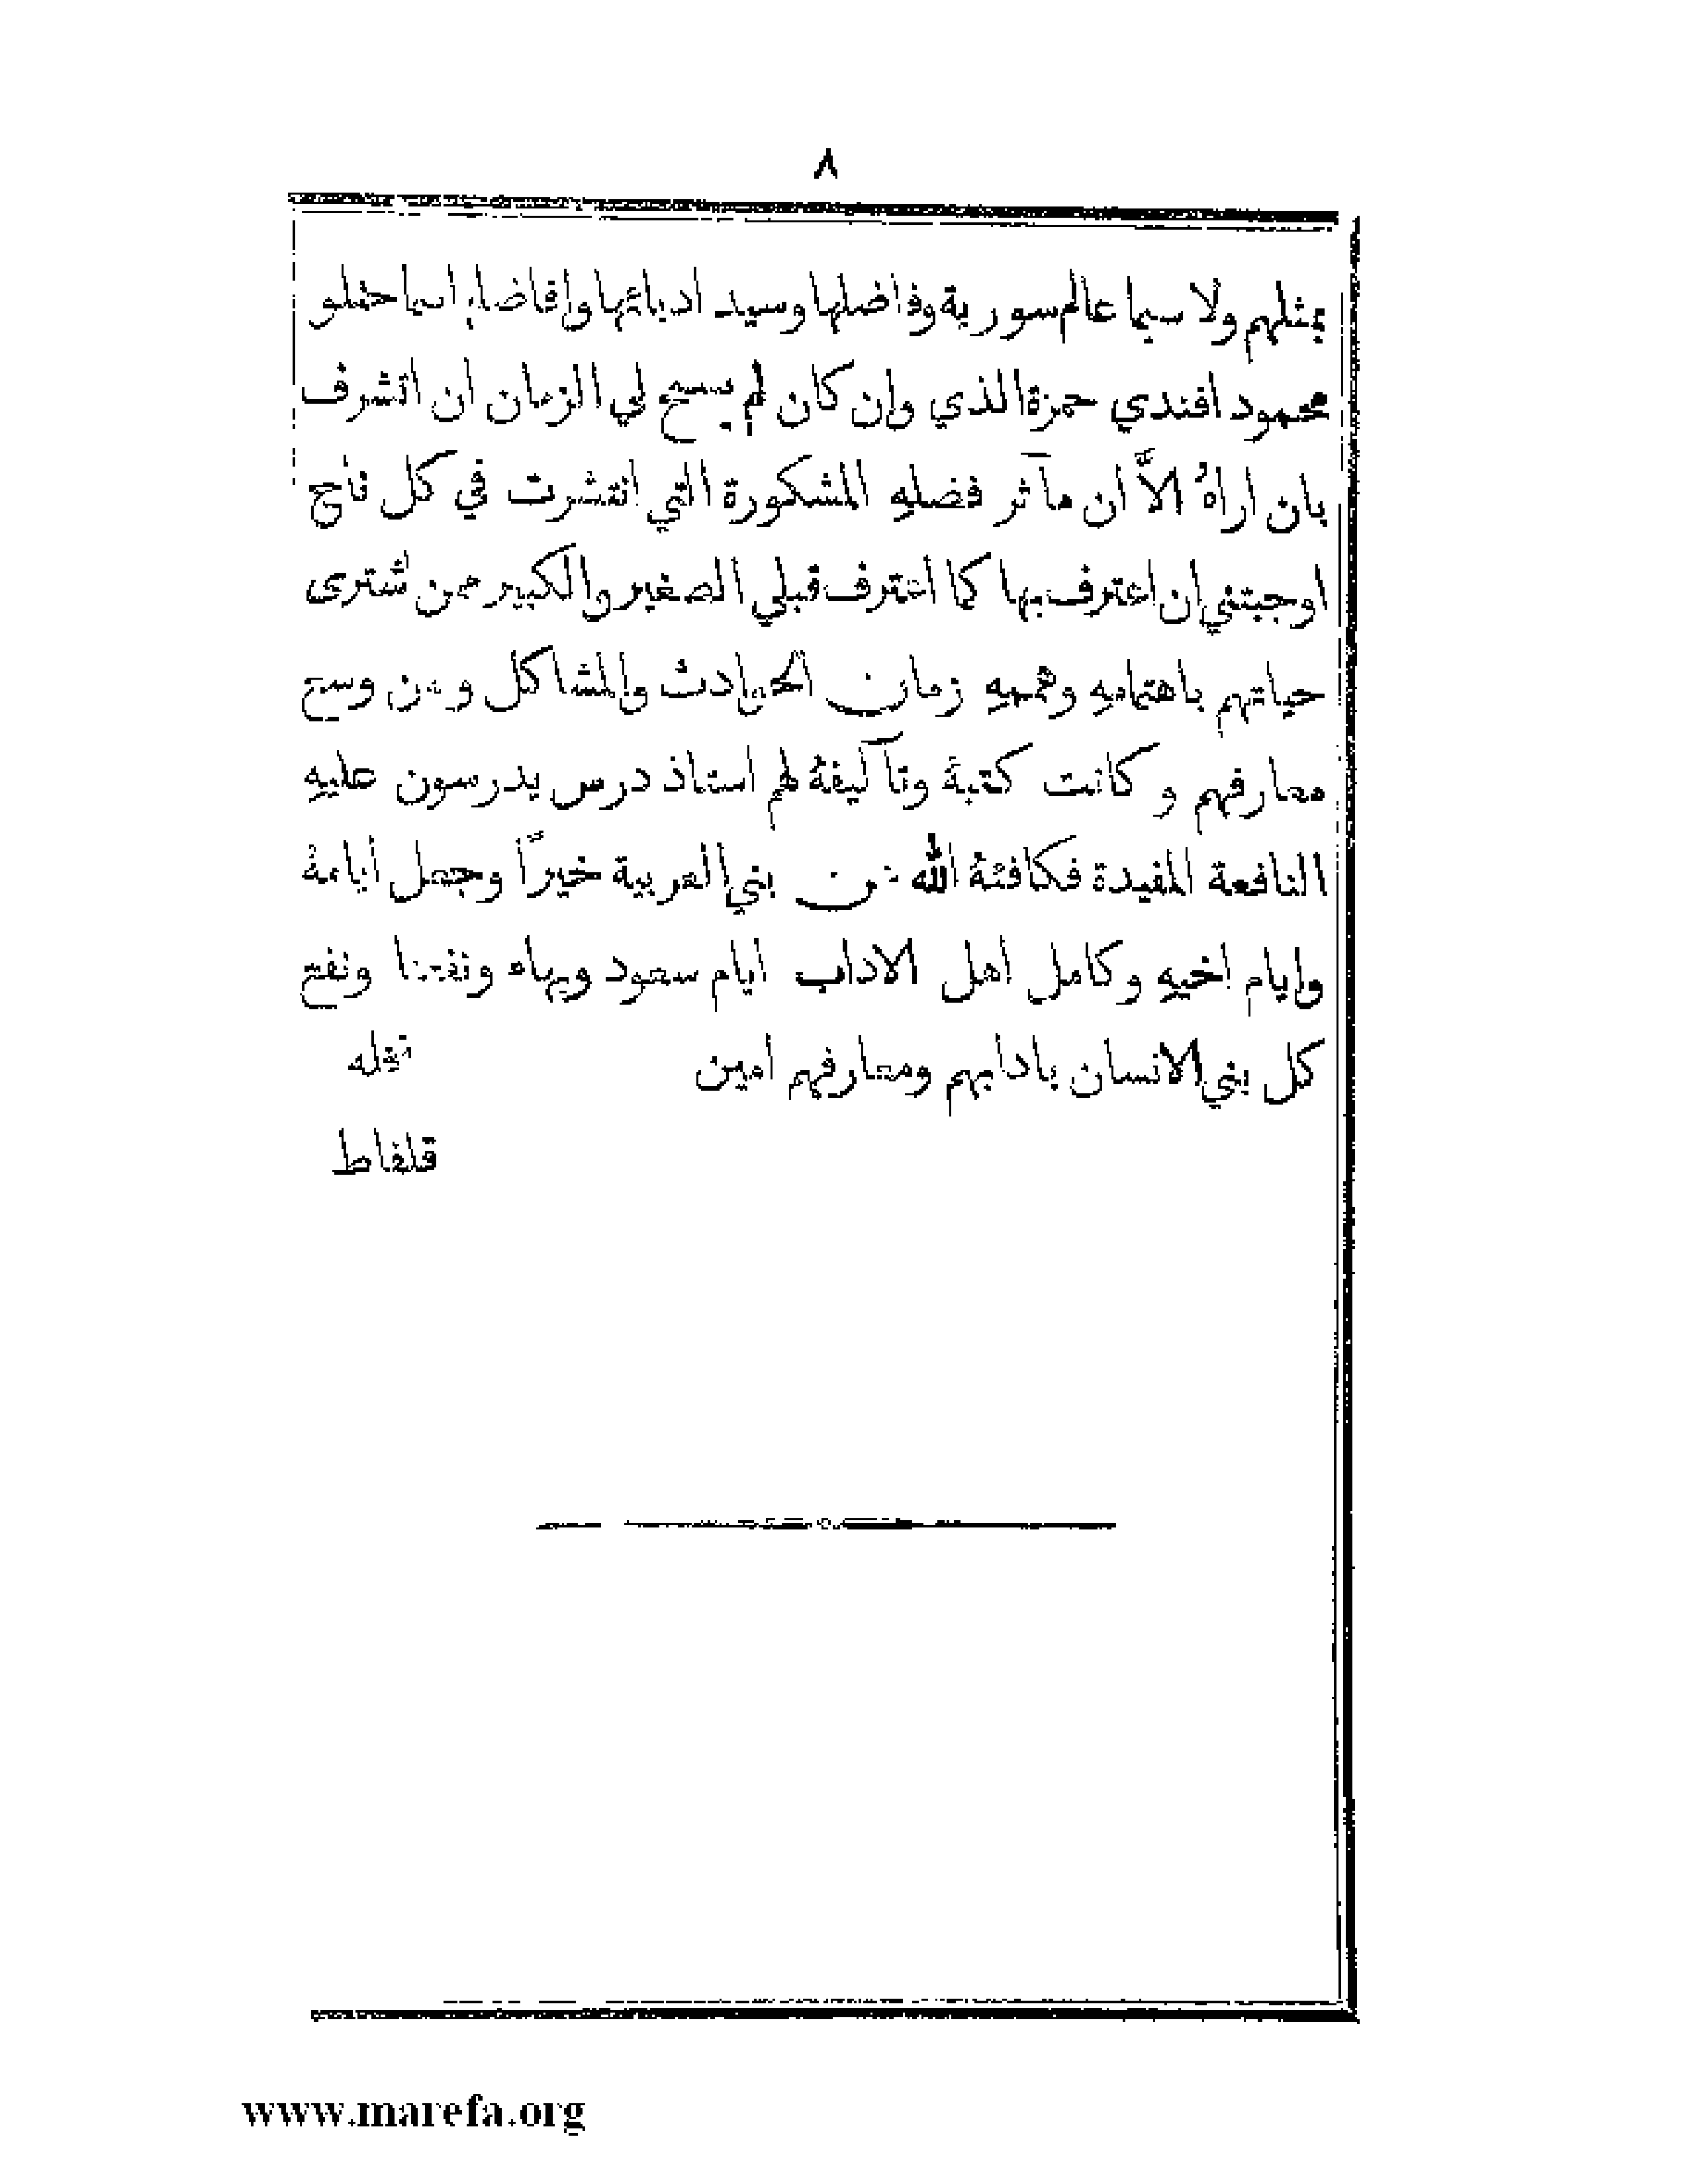 ٨
بمثلهم ولا سيما عالم سورية وفاضلها وسيد ادبائها وافاضلها سماحتلو
محمود افندي حمزة الذي وان كان لم يسمح لي الزمان ان اتشرف
بان اراهُ الاَّ ان مآثر فضلهِ المشكورة التي انتشرت في كل ناحٍ
اوجبتني ان اعترف بها كما اعترف قبلي الصغير والكبير ممن تُشترى
حياتهم باهتمامهِ وهممهِ زمان الحوادث والمشاكل ومن وسع
معارفهم وكانت كتبهُ وتآليفهُ لهم استاذ درس يدرسون عليهِ
النافعة المفيدة فكافئهُ الله من بني العربية خيراً وجعل ايامهُ
وايام اخيهِ وكامل اهل الاداب ايام سعود وبهاء ونفعنا ونفع
كل بني الانسان بادابهم ومعارفهم امين نخله
قلفاط
www.marefa.org